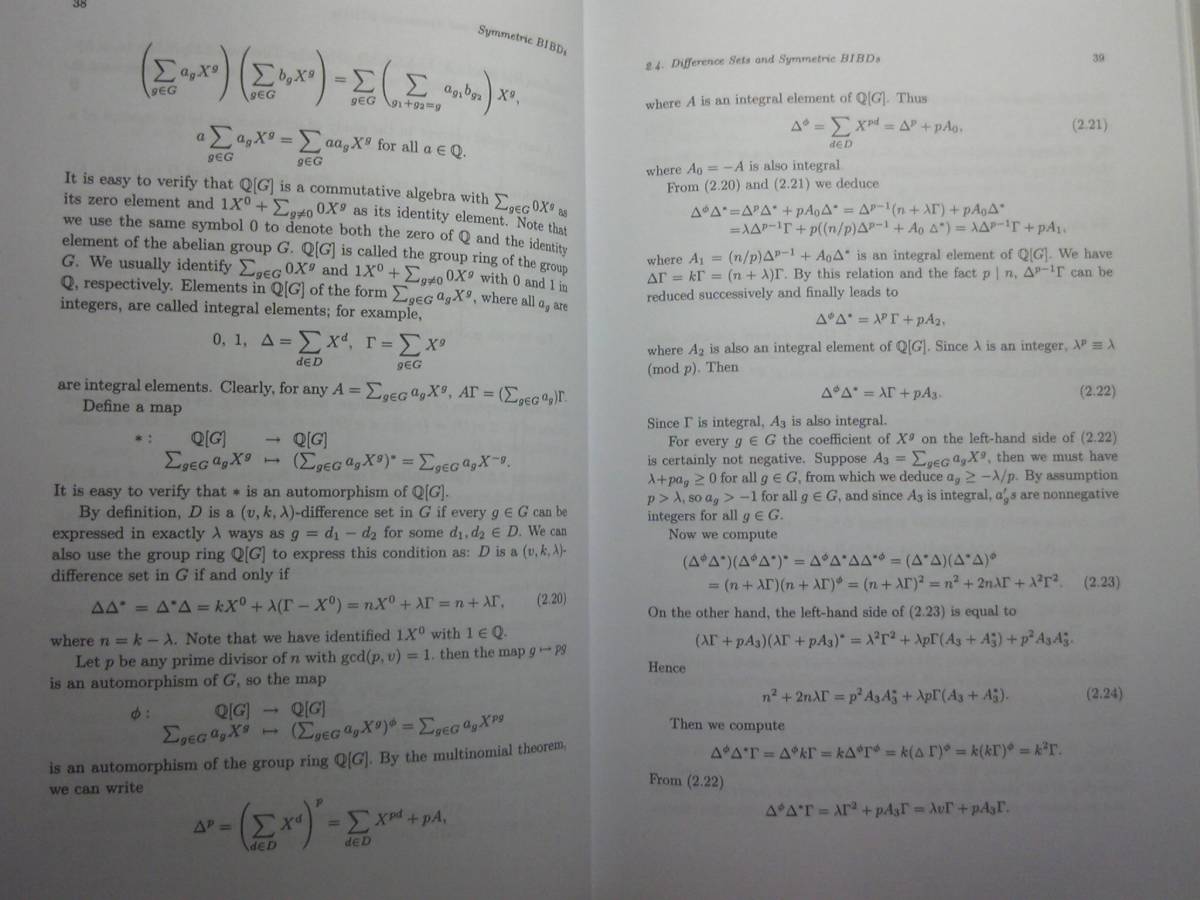 38
Symmetric BIBDs
(∑_{g∈G} a_g X^g) (∑_{g∈G} b_g X^g) = ∑_{g∈G} (∑_{g_1+g_2=g} a_{g_1} b_{g_2}) X^g,
a ∑_{g∈G} a_g X^g = ∑_{g∈G} aa_g X^g for all a ∈ ℚ.
It is easy to verify that ℚ[G] is a commutative algebra with ∑_{g∈G} 0X^g as
its zero element and 1X^0 + ∑_{g≠0} 0X^g as its identity element. Note that
we use the same symbol 0 to denote both the zero of ℚ and the identity
element of the abelian group G. ℚ[G] is called the group ring of the group
G. We usually identify ∑_{g∈G} 0X^g and 1X^0 + ∑_{g≠0} 0X^g with 0 and 1 in
ℚ, respectively. Elements in ℚ[G] of the form ∑_{g∈G} a_g X^g, where all a_g are
integers, are called integral elements; for example,
0, 1, Δ = ∑_{d∈D} X^d, Γ = ∑_{g∈G} X^g
are integral elements. Clearly, for any A = ∑_{g∈G} a_g X^g, AΓ = (∑_{g∈G} a_g)Γ.
Define a map
* : ℚ[G] → ℚ[G]
∑_{g∈G} a_g X^g ↦ (∑_{g∈G} a_g X^g)* = ∑_{g∈G} a_g X^{-g}.
It is easy to verify that * is an automorphism of ℚ[G].
By definition, D is a (v, k, λ)-difference set in G if every g ∈ G can be
expressed in exactly λ ways as g = d_1 − d_2 for some d_1, d_2 ∈ D. We can
also use the group ring ℚ[G] to express this condition as: D is a (v, k, λ)-
difference set in G if and only if
ΔΔ* = Δ*Δ = kX^0 + λ(Γ − X^0) = nX^0 + λΓ = n + λΓ, (2.20)
where n = k − λ. Note that we have identified 1X^0 with 1 ∈ ℚ.
Let p be any prime divisor of n with gcd(p, v) = 1. then the map g ↦ pg
is an automorphism of G, so the map
φ : ℚ[G] → ℚ[G]
∑_{g∈G} a_g X^g ↦ (∑_{g∈G} a_g X^g)^φ = ∑_{g∈G} a_g X^{pg}
is an automorphism of the group ring ℚ[G]. By the multinomial theorem,
we can write
Δ^p = (∑_{d∈D} X^d)^p = ∑_{d∈D} X^{pd} + pA,
2.4. Difference Sets and Symmetric BIBDs 39
where A is an integral element of ℚ[G]. Thus
Δ^φ = ∑_{d∈D} X^{pd} = Δ^p + pA_0, (2.21)
where A_0 = −A is also integral.
From (2.20) and (2.21) we deduce
Δ^φΔ* =Δ^pΔ* + pA_0Δ* = Δ^{p−1}(n + λΓ) + pA_0Δ*
=λΔ^{p−1}Γ + p((n/p)Δ^{p−1} + A_0 Δ*) = λΔ^{p−1}Γ + pA_1,
where A_1 = (n/p)Δ^{p−1} + A_0Δ* is an integral element of ℚ[G]. We have
ΔΓ = kΓ = (n + λ)Γ. By this relation and the fact p | n, Δ^{p−1}Γ can be
reduced successively and finally leads to
Δ^φΔ* = λ^pΓ + pA_2,
where A_2 is also an integral element of ℚ[G]. Since λ is an integer, λ^p ≡ λ
(mod p). Then
Δ^φΔ* = λΓ + pA_3. (2.22)
Since Γ is integral, A_3 is also integral.
For every g ∈ G the coefficient of X^g on the left-hand side of (2.22)
is certainly not negative. Suppose A_3 = ∑_{g∈G} a_g X^g, then we must have
λ+pa_g ≥ 0 for all g ∈ G, from which we deduce a_g ≥ −λ/p. By assumption
p > λ, so a_g > −1 for all g ∈ G, and since A_3 is integral, a'_g s are nonnegative
integers for all g ∈ G.
Now we compute
(Δ^φΔ*)(Δ^φΔ*)* = Δ^φΔ*ΔΔ*^φ = (Δ*Δ)(Δ*Δ)^φ
= (n + λΓ)(n + λΓ)^φ = (n + λΓ)^2 = n^2 + 2nλΓ + λ^2Γ^2. (2.23)
On the other hand, the left-hand side of (2.23) is equal to
(λΓ + pA_3)(λΓ + pA_3)* = λ^2Γ^2 + λpΓ(A_3 + A_3*) + p^2A_3A_3*.
Hence
n^2 + 2nλΓ = p^2A_3A_3* + λpΓ(A_3 + A_3*). (2.24)
Then we compute
Δ^φΔ*Γ = Δ^φkΓ = kΔ^φΓ^φ = k(Δ Γ)^φ = k(kΓ)^φ = k^2Γ.
From (2.22)
Δ^φΔ*Γ = λΓ^2 + pA_3Γ = λvΓ + pA_3Γ.